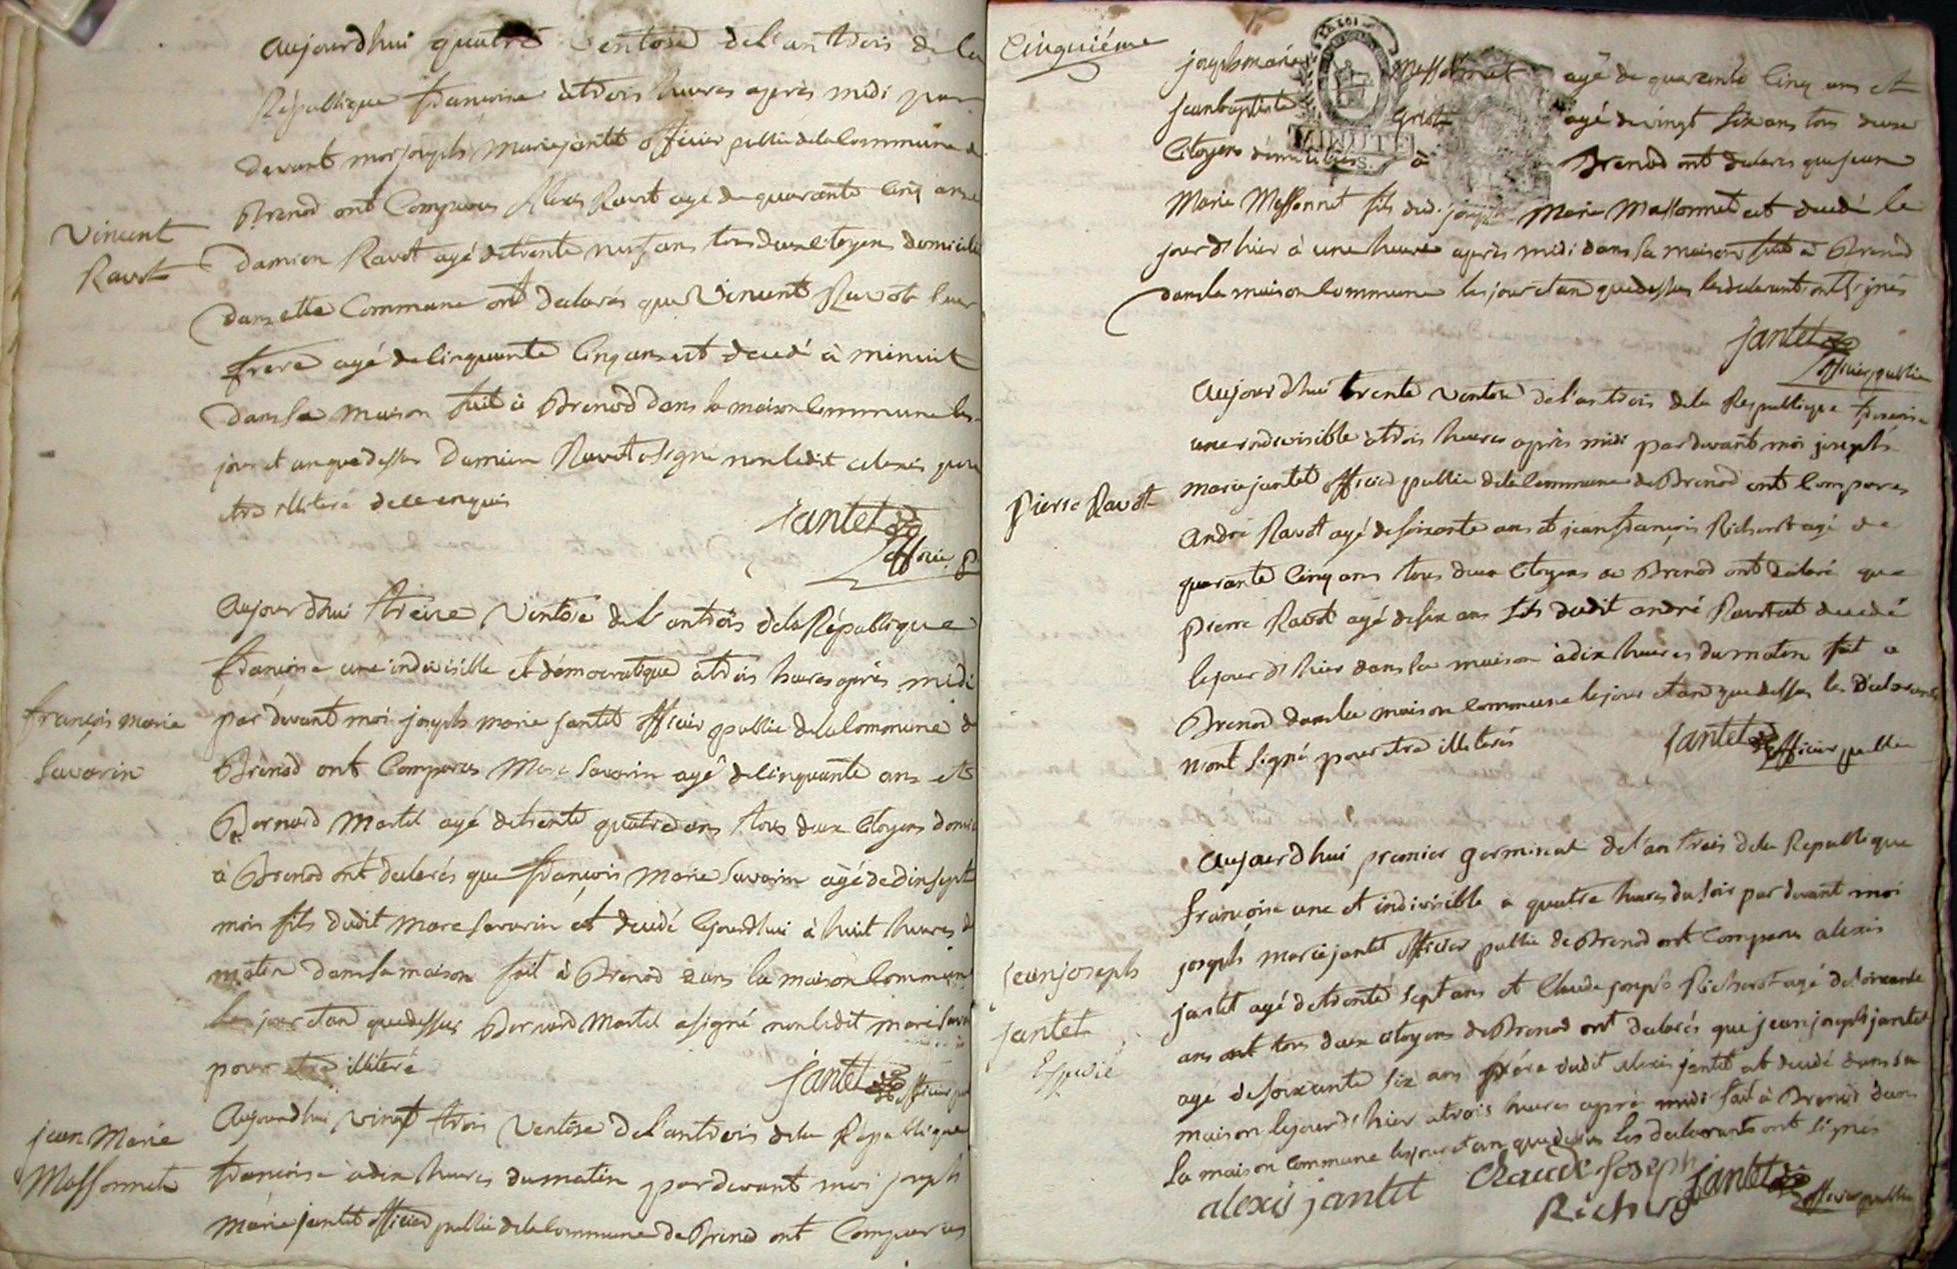 aujourd'hui quatre ventose de l'an trois de la
République françoise à trois heures après midi par
devant moi joseph marie jantet officier public de la Commune de
Brenod ont Comparus Alexis Ravot agé de quarante Cinq ans et
Vincent
Ravot
Damien Ravot agé de trente neuf ans tous deux Citoyens domiciliés
dans cette Commune ont declarés que Vincent Ravot leur
frere agé de Cinquante Cinq ans est decedé à minuit
dans sa maison fait à Brenod dans la maison Commune les
jour et an que dessus Damien Ravot a signé non ledit alexis pour
etre illiteré de ce enquis
jantet
officier p
aujourd'hui treize Ventose de l'an trois de la République
françoise une indivisible et démocratique à trois heures après midi
françois marie
Savarin
par devant moi joseph marie jantet officier public de la Commune de
Brenod ont Comparus Marc Savarin agé de Cinquante ans et
Bernard Martel agé de trente quatre ans tous deux Citoyens domic
à Brenod ont declarés que françois Marie Savarin agé de dix sept
mois fils dudit Marc Savarin est decedé Cejourdhui à huit heures du
matin dans sa maison fait à Brenod dans la maison Commune
les jour et an que dessus Bernard Martel a signé non ledit marc Sava
pour etre illiteré
jantet officier pu
jean Marie
Massonnet
Aujourdhui vingt trois Ventose de l'an trois de la République
françoise à dix heures du matin par devant moi joseph
marie jantet officier public de la Commune de Brenod ont Comparus
Cinquiéme
joseph marie Massonnet agé de quarante Cinq ans et
jean baptiste agé de vingt six ans tous deux
MINUTE
Citoyens domiciliés à Brenod ont declarés que jean
Marie Massonnet fils dud. joseph Marie Massonnet est decedé le
jour d'hier à une heure après midi dans sa maison fait à Brenod
dans la maison Commune les jour et an que dessus les declarants ont signés
jantet
officier public
aujourd'hui trente ventose de l'an trois de la Republique françoise
une indivisible à trois heures après midi par devant moi joseph
Pierre Ravot
marie jantet officier public de la Commune de Brenod ont Compares
André Ravot agé de soixante ans et jean françois Richerot agé de
quarante Cinq ans tous deux Citoyens de Brenod ont déclaré que
pierre Ravot agé de six ans fils dudit andré Ravot est decedé
le jour d'hier dans sa maison à dix heures du matin fait à
Brenod dans la maison Commune le jour et an que dessus les declarants
n'ont signé pour etre illiterés
jantet officier public
aujourdhui premier germinal de l'an trois de la Republique
françoise une et indivisible a quatre heures du soir par devant moi
jean joseph
jantet
joseph marie jantet officier public de Brenod ont Comparus alexis
jantet agé de trente sept ans et Claude joseph Richerot agé de soixante
ans ont tous deux citoyens de Brenod ont declarés que jean joseph jantet
agé de soixante six ans père dudit alexis jantet est decedé dans sa
maison le jour d'hier a trois heures après midi fait à Brenod dans
la maison commune les jour et an que dessus les declarants ont signés
alexis jantet Claude Joseph
Richerot jantet officier public